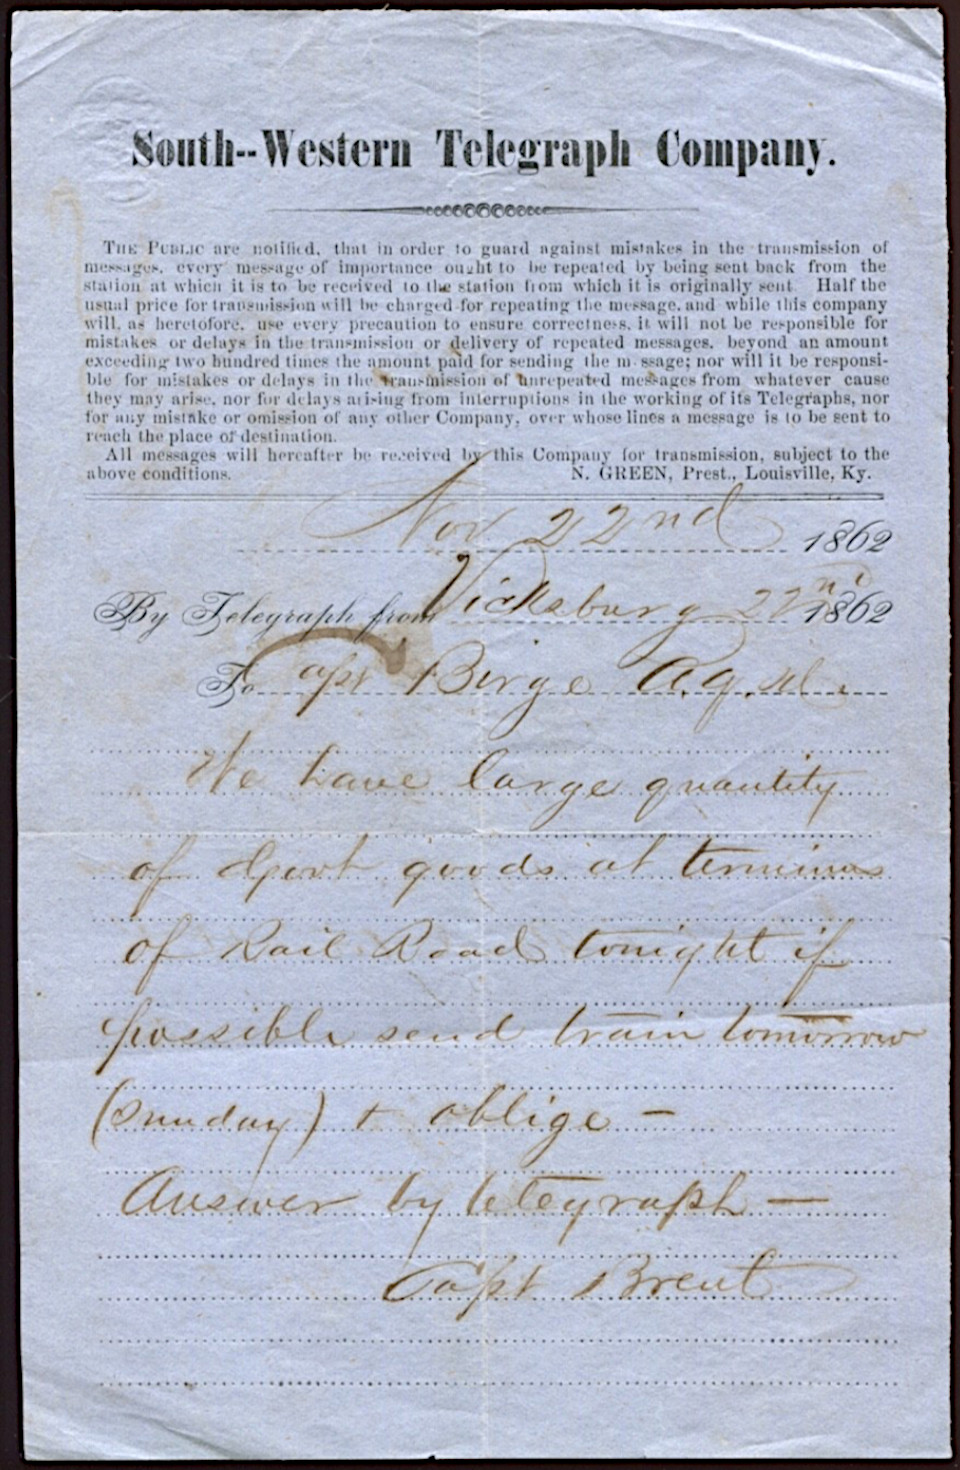 South--Western Telegraph Company.
THE PUBLIC are notified, that in order to guard against mistakes in the transmission of
messages, every message of importance ought to be repeated by being sent back from the
station at which it is to be received to the station from which it is originally sent. Half the
usual price for transmission will be charged for repeating the message, and while this company
will, as heretofore, use every precaution to ensure correctness, it will not be responsible for
mistakes or delays in the transmission or delivery of repeated messages, beyond an amount
exceeding two hundred times the amount paid for sending the m ssage; nor will it be responsi-
ble for mistakes or delays in the transmission of unrepeated messages from whatever cause
they may arise, nor for delays arising from interruptions in the working of its Telegraphs, nor
for any mistake or omission of any other Company, over whose lines a message is to be sent to
reach the place of destination.
All messages will hereafter be received by this Company for transmission, subject to the
above conditions. N. GREEN, Prest., Louisville, Ky.
Nov 22nd 1862
By Telegraph from Vicksburg 22nd 1862
To Capt Birge A.q.M.
We have large quantity
of Govt goods at terminus
of Rail Road tonight if
possible send train tomorrow
(Sunday) & oblige —
Answer by telegraph —
Capt Brent